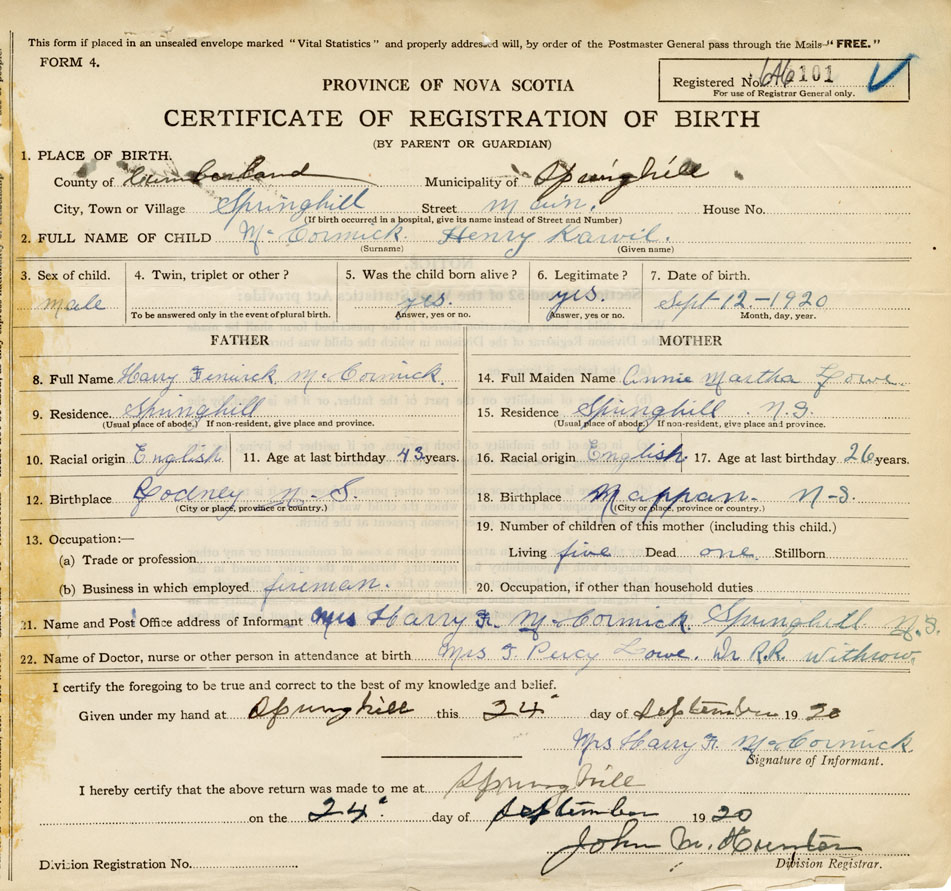 This form if placed in an unsealed envelope marked "Vital Statistics" and properly addressed will, by order of the Postmaster General pass through the Mails "FREE."
FORM 4.
Registered No. 101
For use of Registrar General only.
PROVINCE OF NOVA SCOTIA
CERTIFICATE OF REGISTRATION OF BIRTH
(BY PARENT OR GUARDIAN)
1. PLACE OF BIRTH.
County of Cumberland Municipality of Springhill
City, Town or Village Springhill Street Main. House No.
(If birth occurred in a hospital, give its name instead of Street and Number)
2. FULL NAME OF CHILD McCormick. Henry
(Surname) (Given name)
3. Sex of child. 4. Twin, triplet or other? 5. Was the child born alive? 6. Legitimate? 7. Date of birth.
male yes. yes. Sept 12.-1920
To be answered only in the event of plural birth. Answer, yes or no. Answer, yes or no. Month, day, year.
FATHER
8. Full Name Harry McCormick
9. Residence. Springhill
(Usual place of abode.) If non-resident, give place and province.
10. Racial origin English 11. Age at last birthday 43 years.
12. Birthplace N-S.
(City or place, province or country.)
13. Occupation:—
(a) Trade or profession
(b) Business in which employed fireman.
MOTHER
14. Full Maiden Name Annie Martha Lowe.
15. Residence Springhill. N.S.
(Usual place of abode.) If non-resident, give place and province.
16. Racial origin English 17. Age at last birthday 26 years.
18. Birthplace Nappan. N-S.
(City or place, province or country.)
19. Number of children of this mother (including this child.)
Living five Dead one Stillborn
20. Occupation, if other than household duties
21. Name and Post Office address of Informant Mrs Harry F. McCormick. Springhill N.S.
22. Name of Doctor, nurse or other person in attendance at birth Mrs Percy Lowe. Dr R.R. Withrow.
I certify the foregoing to be true and correct to the best of my knowledge and belief.
Given under my hand at Springhill this 24 day of September 1920
Mrs Harry F. McCormick.
Signature of Informant.
I hereby certify that the above return was made to me at Springhill
on the 24 day of September 1920
John M. Hunter
Division Registration No. Division Registrar.